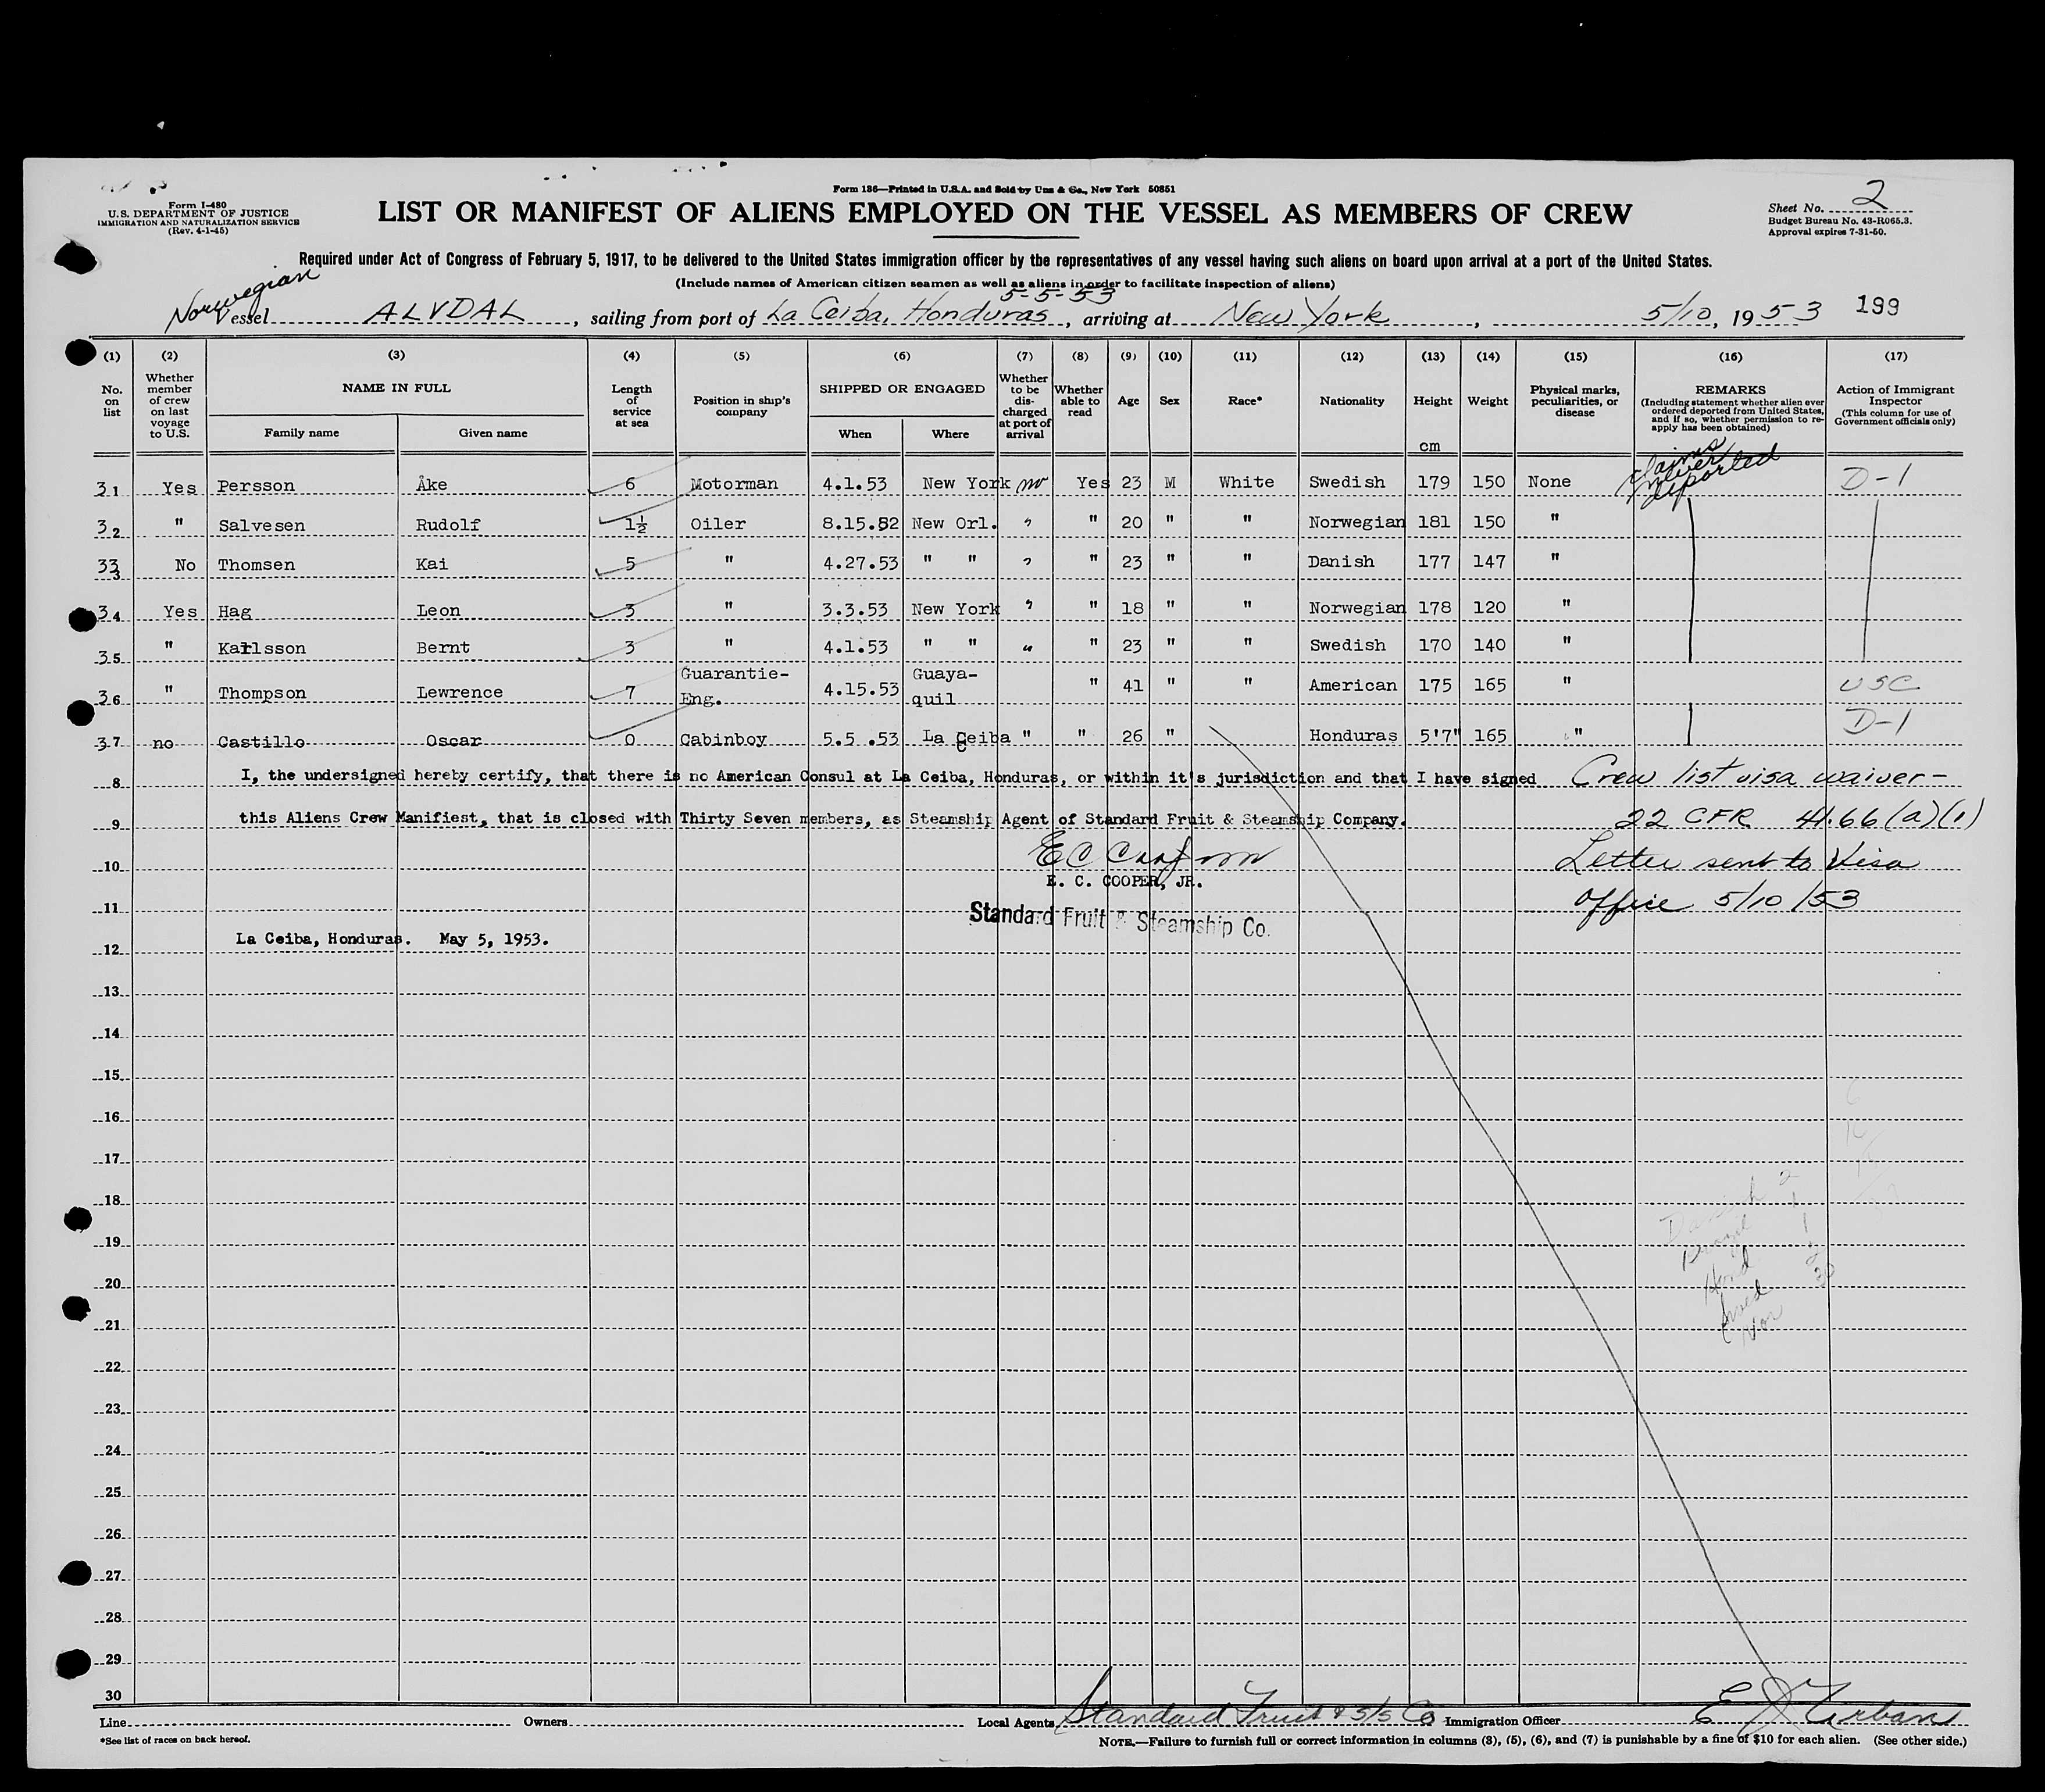 Form 136—Printed in U.S.A. and Sold by Unz & Co., New York 50851
Form I-480
U.S. DEPARTMENT OF JUSTICE
IMMIGRATION AND NATURALIZATION SERVICE
(Rev. 4-1-45)
LIST OR MANIFEST OF ALIENS EMPLOYED ON THE VESSEL AS MEMBERS OF CREW
Sheet No. 2
Budget Bureau No. 43-R065.3.
Approval expires 7-31-50.
Required under Act of Congress of February 5, 1917, to be delivered to the United States immigration officer by the representatives of any vessel having such aliens on board upon arrival at a port of the United States.
(Include names of American citizen seamen as well as aliens in order to facilitate inspection of aliens)
Norwegian 5-5-53
Vessel ALVDAL, sailing from port of La Ceiba, Honduras, arriving at New York, 5/10, 1953 199
(1) (2) (3) (4) (5) (6) (7) (8) (9) (10) (11) (12) (13) (14) (15) (16) (17)
No. on list
Whether member of crew on last voyage to U.S.
NAME IN FULL
Family name Given name
Length of service at sea
Position in ship's company
SHIPPED OR ENGAGED
When Where
Whether to be discharged at port of arrival
Whether able to read
Age
Sex
Race*
Nationality
Height
cm
Weight
Physical marks, peculiarities, or disease
REMARKS
(Including statement whether alien ever ordered deported from United States, and if so, whether permission to reapply has been obtained)
Action of Immigrant Inspector
(This column for use of Government officials only)
31 Yes Persson Åke 6 Motorman 4.1.53 New York no Yes 23 M White Swedish 179 150 None Claims never deported D-1
32 " Salvesen Rudolf 1½ Oiler 8.15.52 New Orl. " " 20 " " Norwegian 181 150 "
33 No Thomsen Kai 5 " 4.27.53 " " " " 23 " " Danish 177 147 "
34 Yes Hag Leon 3 " 3.3.53 New York " " 18 " " Norwegian 178 120 "
35 " Karlsson Bernt 3 " 4.1.53 " " " " 23 " " Swedish 170 140 "
36 " Thompson Lewrence 7 Guarantie-Eng. 4.15.53 Guayaquil " 41 " " American 175 165 " USC
37 no Castillo Oscar 0 Cabinboy 5.5.53 La Ceiba " " 26 " Honduras 5'7" 165 " D-1
8 I, the undersigned hereby certify, that there is no American Consul at La Ceiba, Honduras, or within it's jurisdiction and that I have signed Crew list visa waiver-
9 this Aliens Crew Manifiest, that is closed with Thirty Seven members, as Steamship Agent of Standard Fruit & Steamship Company. 22 CFR 41.66(a)(1)
10 Letter sent to Visa
E. C. COOPER, JR.
11 Standard Fruit & Steamship Co. Office 5/10/53
12 La Ceiba, Honduras. May 5, 1953.
13
14
15
16
17
18 Danish 2
19
20 Hond
21 Swed
Nor
22
23
24
25
26
27
28
29
30
Line Owners Local Agents Standard Fruit & S/S Co Immigration Officer E J Urban
*See list of races on back hereof.
NOTE.—Failure to furnish full or correct information in columns (3), (5), (6), and (7) is punishable by a fine of $10 for each alien. (See other side.)